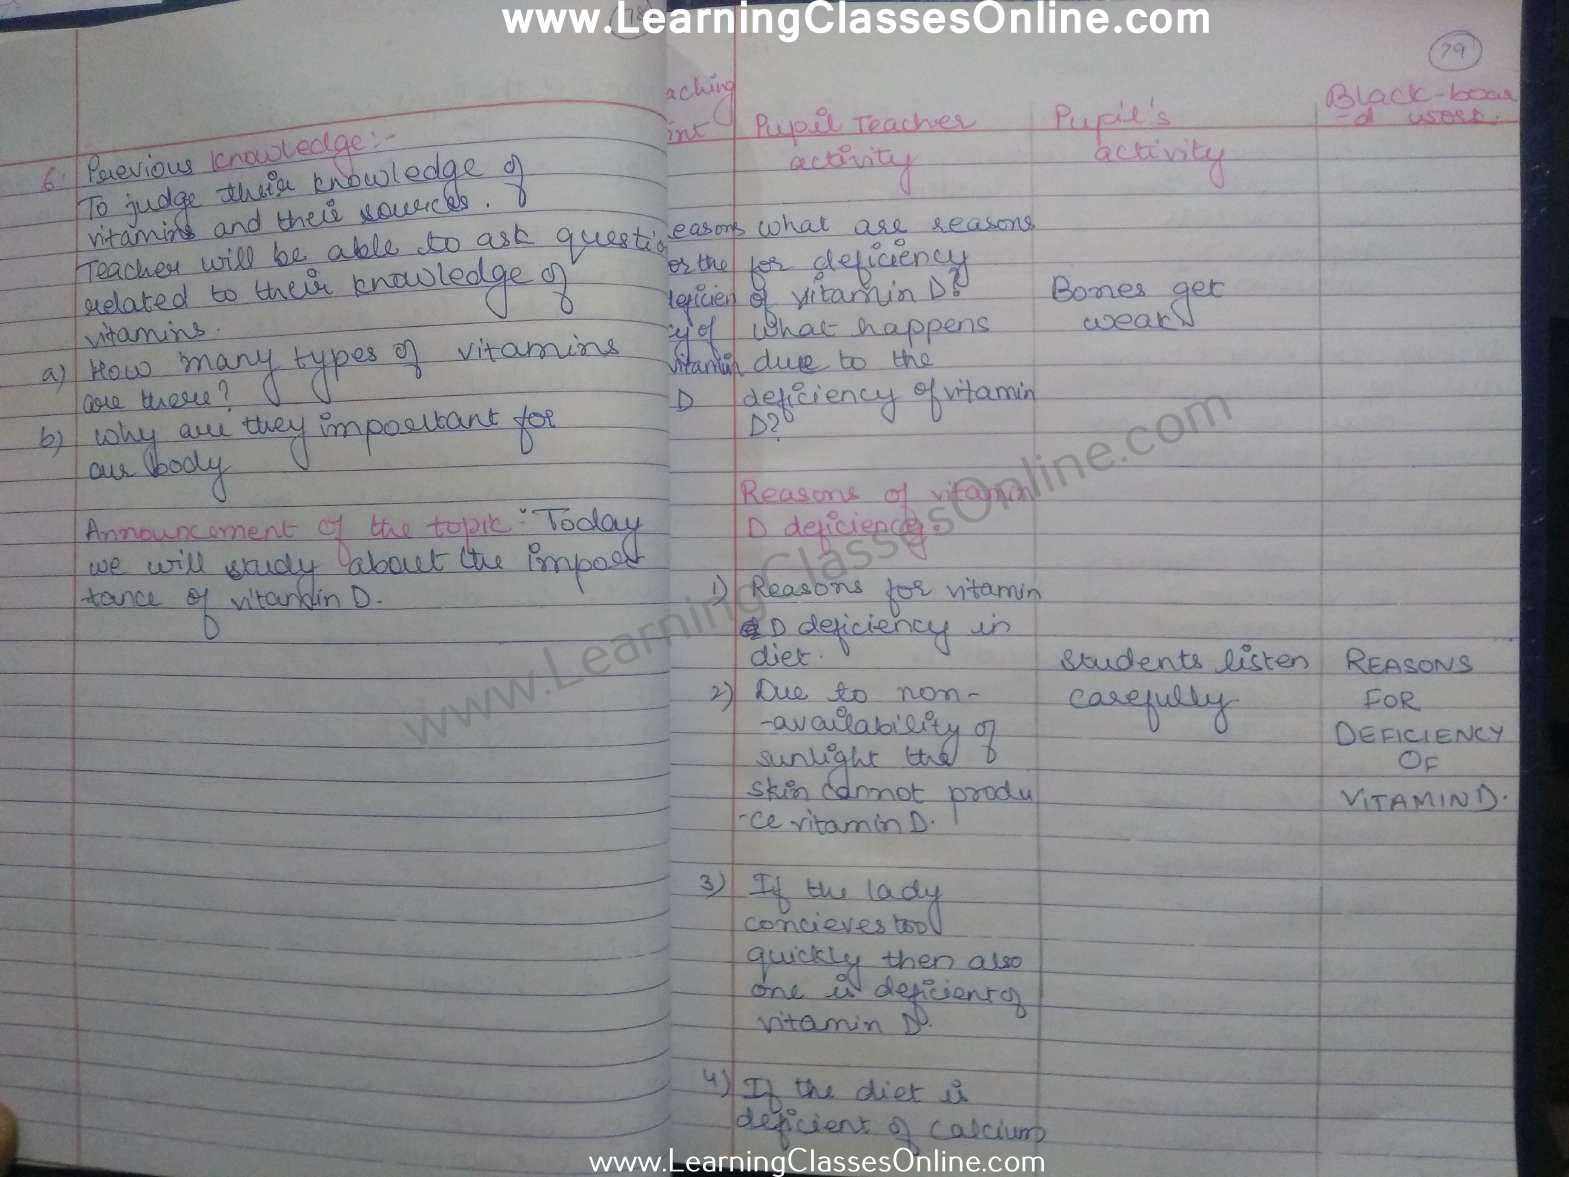 www.LearningClassesOnline.com
78
6. Previous knowledge:-
To judge their knowledge of
vitamins and their sources.
Teacher will be able to ask questio
related to their knowledge of
vitamins.
a) How many types of vitamins
are there?
b) why are they important for
our body
Announcement of the topic "Today
we will study about the impor
tance of vitamin D.
79
aching
int
Pupil Teacher
activity
Pupil's
activity
Black-boar
-d work.
easons
or the
deficien
cy of
vitamin
D
what are reasons
for deficiency
of vitamin D?
what happens
due to the
deficiency of vitamin
D?
Bones get
weak
Reasons of vitamin
D deficiency.
1) Reasons for vitamin
D deficiency in
diet.
2) Due to non-
-availability of
sunlight the
skin cannot produ
-ce vitamin D.
students listen
carefully
REASONS
FOR
DEFICIENCY
OF
VITAMIN D.
3) If the lady
concieves too
quickly then also
one is deficient of
vitamin D.
4) If the diet is
deficient of calcium
www.LearningClassesOnline.com
www.LearningClassesOnline.com